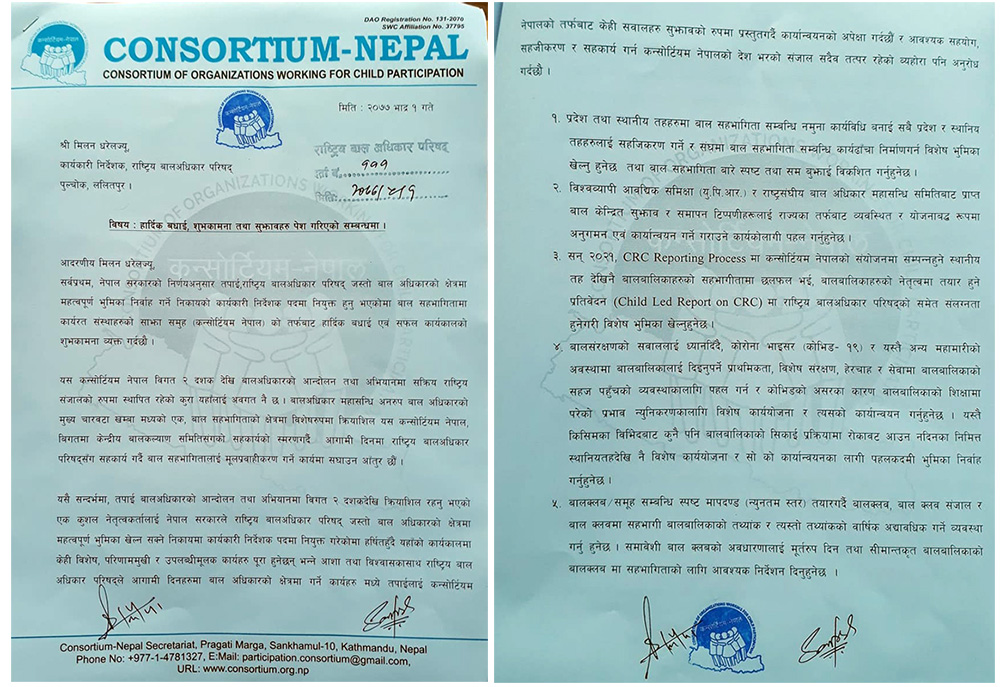 DAO Registration No. 131-2070
SWC Affiliation No. 37795
CONSORTIUM-NEPAL
CONSORTIUM OF ORGANIZATIONS WORKING FOR CHILD PARTICIPATION
मिति : २०७७ भाद्र १ गते
श्री मिलन धरेलज्यू,
कार्यकारी निर्देशक, राष्ट्रिय बालअधिकार परिषद्
पुल्चोक, ललितपुर ।
राष्ट्रिय बाल अधिकार परिषद्
दर्ता नं. १११
मिति:
विषय : हार्दिक बधाई, शुभकामना तथा सुझावहरु पेश गरिएको सम्बन्धमा ।
आदरणीय मिलन धरेलज्यू,
सर्वप्रथम, नेपाल सरकारको निर्णयअनुसार तपाई,राष्ट्रिय बालअधिकार परिषद् जस्तो बाल अधिकारको क्षेत्रमा
महत्वपूर्ण भुमिका निर्वाह गर्ने निकायको कार्यकारी निर्देशक पदमा नियुक्त हुनु भएकोमा बाल सहभागितामा
कार्यरत संस्थाहरुको साभ्का समुह (कन्सोर्टियम नेपाल) को तर्फबाट हार्दिक बधाई एवं सफल कार्यकालको
शुभकामना व्यक्त गर्दछौं ।
यस कन्सोर्टियम नेपाल विगत २ दशक देखि बालअधिकारको आन्दोलन तथा अभियानमा सक्रिय राष्ट्रिय
संजालको रुपमा स्थापित रहेको कुरा यहाँलाई अवगत नै छ । बालअधिकार महासन्धि अनरुप बाल अधिकारको
मुख्य चारवटा खम्बा मध्यको एक, बाल सहभागिताको क्षेत्रमा विशेषरुपमा क्रियाशिल यस कन्सोर्टियम नेपाल,
विगतमा केन्द्रीय बालकल्याण समितिसंगको सहकार्यको स्मरणगर्दै आगामी दिनमा राष्ट्रिय बालअधिकार
परिषद्संग सहकार्य गर्दै बाल सहभागितालाई मूलप्रवाहीकरण गर्ने कार्यमा सघाउन आंतुर छौं ।
यसै सन्दर्भमा, तपाई बालअधिकारको आन्दोलन तथा अभियानमा विगत २ दशकदेखि क्रियाशिल रहनु भएको
एक कुशल नेतृत्वकर्तालाई नेपाल सरकारले राष्ट्रिय बालअधिकार परिषद् जस्तो बाल अधिकारको क्षेत्रमा
महत्वपूर्ण भुमिका खेल्न सक्ने निकायमा कार्यकारी निर्देशक पदमा नियुक्त गरेकोमा हर्षितहुदै यहाँको कार्यकालमा
केही विशेष, परिणाममुखी र उपलब्धीमूलक कार्यहरु पूरा हुनेछन् भन्ने आशा तथा विश्वासकासाथ राष्ट्रिय बाल
अधिकार परिषद्ले आगामी दिनहरुमा बाल अधिकारको क्षेत्रमा गर्ने कार्यहरु मध्ये तपाईलाई कन्सोर्टियम
Consortium-Nepal Secretariat, Pragati Marga, Sankhamul-10, Kathmandu, Nepal
Phone No: +977-1-4781327, E:Mail: participation.consortium@gmail.com,
URL: www.consortium.org.np
नेपालको तर्फबाट केही सवालहरु सुझावको रुपमा प्रस्तुतगर्दै कार्यान्वयनको अपेक्षा गर्दछौं र आवश्यक सहयोग,
सहजीकरण र सहकार्य गर्न कन्सोर्टियम नेपालको देश भरको संजाल सदैव तत्पर रहेको व्यहोरा पनि अनुरोध
गर्दछौं ।
१. प्रदेश तथा स्थानीय तहहरुमा बाल सहभागिता सम्बन्धि नमुना कार्यविधि बनाई सबै प्रदेश र स्थानिय
तहहरुलाई सहजिकरण गर्ने र सघमा बाल सहभागिता सम्बन्धि कार्यढाँचा निर्माणगर्न विशेष भुमिका
खेल्नु हुनेछ तथा बाल सहभागिता बारे स्पष्ट तथा सम बुझाई विकशित गर्नुहुनेछ ।
२. विश्वव्यापी आवधिक समिक्षा (यु.पि.आर.) र राष्ट्रसंघीय बाल अधिकार महासन्धि समितिबाट प्राप्त
बाल केन्द्रित सुझाव र समापन टिप्पणीहरूलाई राज्यका तर्फबाट व्यवस्थित र योजनाबद्ध रूपमा
अनुगमन एवं कार्यान्वयन गर्ने गराउने कार्यकोलागी पहल गर्नुहुनेछ ।
३. सन् २०२१, CRC Reporting Process मा कन्सोर्टियम नेपालको संयोजनमा सम्पन्नहुने स्थानीय
तह देखिनै बालबालिकाहरुको सहभागीतामा छलफल भई, बालबालिकाहरुको नेतृत्वमा तयार हुने
प्रतिबेदन (Child Led Report on CRC) मा राष्ट्रिय बालअधिकार परिषद्को समेत संलग्नता
हुनेगरी विशेष भुमिका खेल्नुहुनेछ ।
४. बालसंरक्षणको सवाललाई ध्यानदिदै, कोरोना भाइसर (कोभिड- १९) र यस्तै अन्य महामारीको
अवस्थामा बालबालिकालाई दिइनुपर्ने प्राथमिकता, विशेष संरक्षण, हेरचाह र सेवामा बालबालिकाको
सहज पहुँचको व्यवस्थाकालागि पहल गर्न र कोभिडको असरका कारण बालबालिकाको शिक्षामा
परेको प्रभाव न्युनिकरणकालागि विशेष कार्ययोजना र त्यसको कार्यान्वयन गर्नुहुनेछ । यस्तै
किसिमका विभिदबाट कुनै पनि बालबालिकाको सिकाई प्रक्रियामा रोकावट आउन नदिनका निमित्त
स्थानियतहदेखि नै विशेष कार्ययोजना र सो को कार्यान्वयनका लागी पहलकदमी भुमिका निर्वाह
गर्नुहुनेछ ।
५. बालक्लब/समूह सम्बन्धि स्पष्ट मापदण्ड (न्युनतम स्तर) तयारगर्दै बालक्लब, बाल क्लब संजाल र
बाल क्लबमा सहभागी बालबालिकाको तथ्यांक र त्यस्तो तथ्यांकको वार्षिक अद्यावधिक गर्ने व्यवस्था
गर्नु हुनेछ । समाबेशी बाल क्लबको अवधारणालाई मूर्तरुप दिन तथा सीमान्तकृत बालबालिकाको
बालक्लब मा सहभागिताको लागि आवश्यक निर्देशन दिनुहुनेछ ।